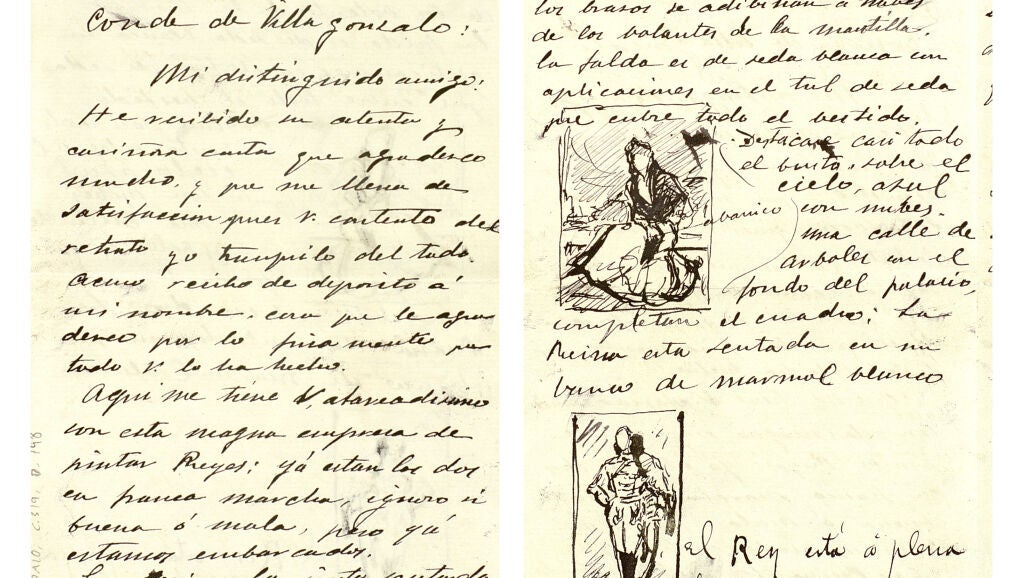 Conde de Villagonzalo:
Mi distinguido amigo:
He recibido su atenta y
cariñosa carta que agradesco
mucho, y que me llena de
satisfaccion pues V. contento del
retrato yo tranquilo del todo.
Acuso recibo de deposito á
mi nombre, cosa que le agra-
desco por lo finamente que
todo V. lo ha hecho.
Aqui me tiene V, atareadisimo
con esta magna empresa de
pintar Reyes; yá estan los dos
en franca marcha, ignoro si
buena ó mala, pero yá
estamos embarcados.
sentada
los brasos se adibinan a travès
de los volantes de la mantilla.
la falda es de seda blanca con
aplicaciones en el tul de seda
que cubre todo el vestido.
Destacase casi todo
el busto, sobre el
cielo, asul
abanico
con nubes.
una calle de
arboles con el
fondo del palacio,
completan el cuadro; La
Reina esta sentada en un
banco de marmol blanco
el Rey está á plena
C.319. D. 198